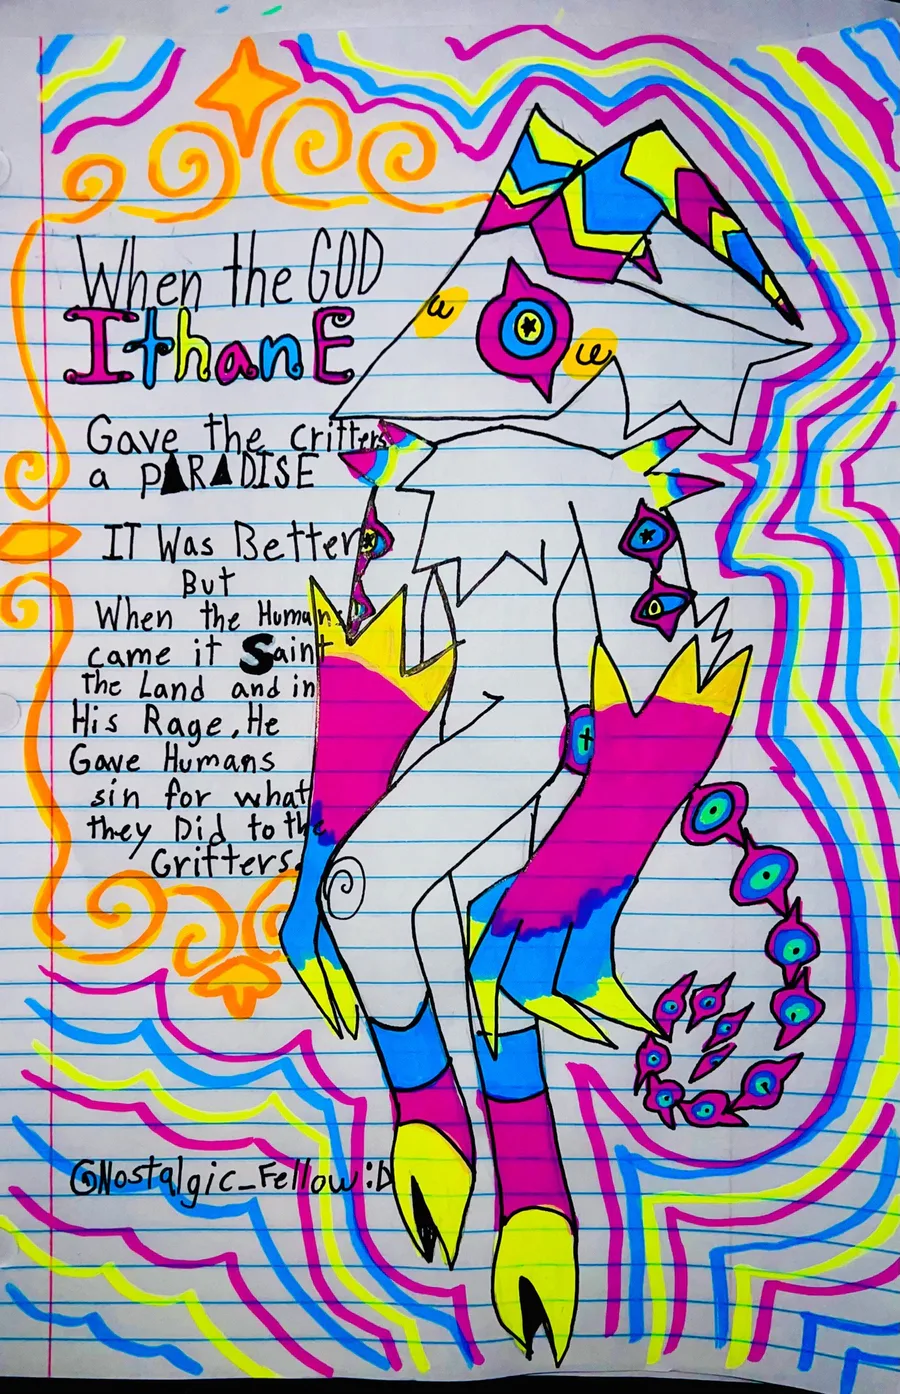 When the GOD
IthanE
Gave the critters
a PARADISE
IT Was Better
But
When the Humans
came it Saint
the Land and in
His Rage, He
Gave Humans
sin for what
they Did to the
Critters.
@Nostalgic_Fellow :D